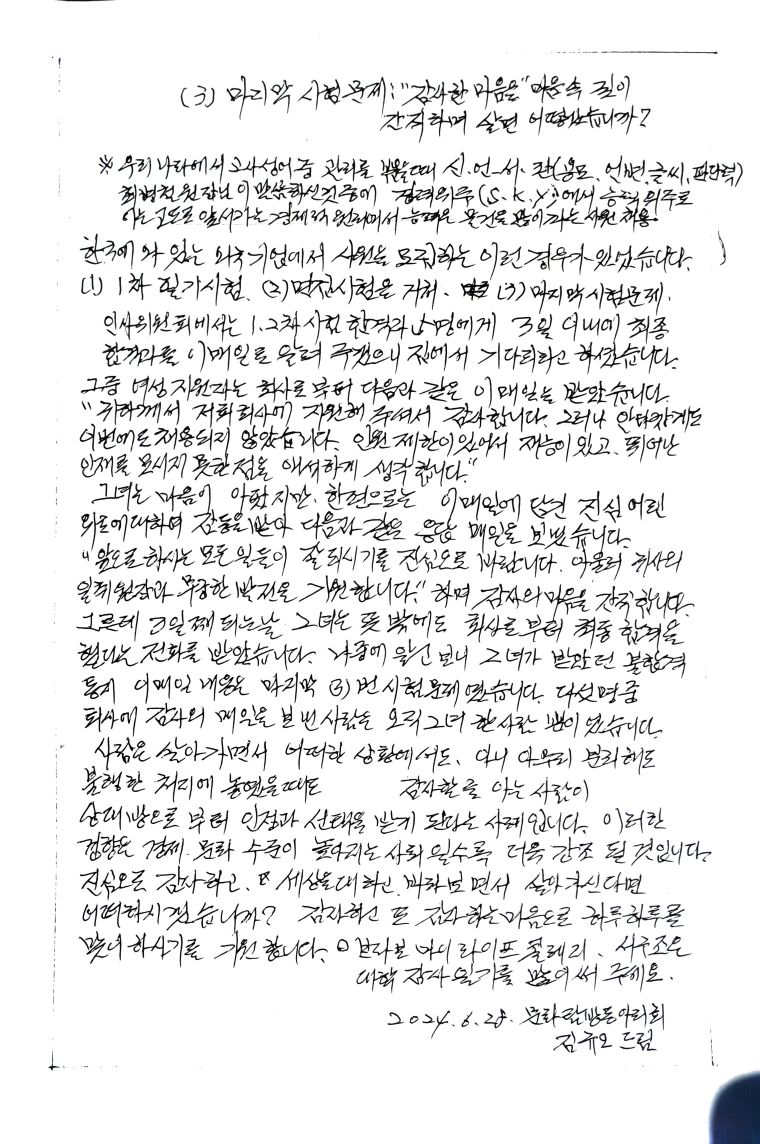 (3) 마지막 시험문제: "감사한 마음을" 마음속 깊이
간직하며 살면 어떻겠습니까?
※ 우리나라에서 고사성어 중 관리를 뽑을때 신.언.서.판(용모, 언변, 글씨, 판단력)
최병천 원장님이 말씀하신것중에 경력위주(S.K.Y)에서 능력위주로
한국에 와 있는 외국기업에서 사원을 모집하는 이런 경우가 있었습니다.
(1) 1차 필기시험, (2) 면접시험을 거쳐, (3) 마지막 시험문제.
인사위원회에서는 1.2차 시험 합격자 5명에게 3일 이내에 최종
합격자를 이메일로 알려 주겠으니 집에서 기다리라고 하셨습니다.
그중 여성지원자는 회사로부터 다음과 같은 이메일을 받았습니다.
"귀하께서 저희 회사에 지원해 주셔서 감사합니다. 그러나 안타깝게도
이번에도 채용되지 않았습니다. 인원 제한이 있어서 재능이 있고, 뛰어난
인재를 모시지 못한 점을 애석하게 생각합니다."
그녀는 마음이 아팠지만, 한편으로는 이메일에 담긴 진심어린
위로에 대하여 감동을 받아 다음과 같은 응답 메일을 보냈습니다.
"앞으로 하시는 모든 일들이 잘 되시기를 진심으로 바랍니다. 아울러 회사의
일취월장과 무궁한 발전을 기원합니다." 하며 감사의 마음을 간직합니다.
그런데 3일째 되는날 그녀는 뜻밖에도 회사로부터 최종 합격을
했다는 전화를 받았습니다. 나중에 알고 보니 그녀가 받았던 불합격
통지 이메일 내용은 마지막 (3)번 시험문제였습니다. 다섯명중
회사에 감사의 메일을 보낸 사람은 오직 그녀 한사람 뿐이었습니다.
사람은 살아가면서 어떠한 상황에서도, 아니 아무리 불리해도
불행한 처지에 놓였을때도 감사할줄 아는 사람이
상대방으로부터 인정과 선택을 받게 된다는 사례입니다. 이러한
경향은 경제.문화 수준이 높아지는 사회일수록 더욱 강조 될 것입니다.
진심으로 감사하고, 세상을 대하고, 바라보면서 살아가신다면
어떠하시겠습니까? 감사하고 또 감사하는 마음으로 하루하루를
맞이하시기를 기원합니다. ○ 브라보 마이 라이프 갤러리, 서구조은
대학 감사일기를 많이 써 주세요.
2024.6.28. 문화탐방동아리회
김규오 드림